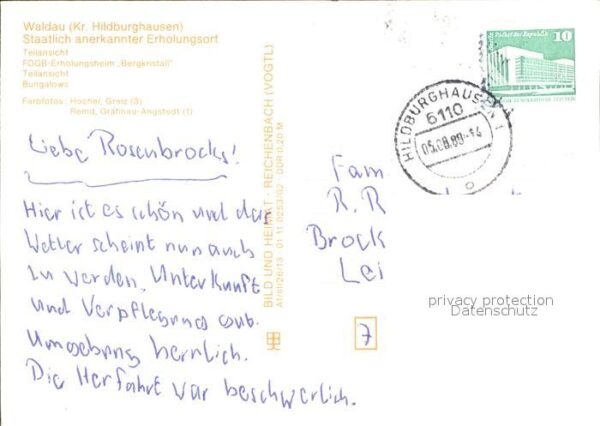 Waldau (Kr. Hildburghausen)
Staatlich anerkannter Erholungsort
Teilansicht
FDGB-Erholungsheim „Bergkristall"
Teilansicht
Bungalows
Farbfotos: Höchel, Greiz (3)
Remd, Gräfinau-Angstedt (1)
Liebe Rosenbrocks!
Hier ist es schön und das
Wetter scheint nun auch
zu werden. Unterkunft
und Verpflegung gut.
Umgebung herrlich.
Die Herfahrt war beschwerlich.
BILD UND HEIMAT REICHENBACH (VOGTL)
A1/III/26/13 01 11 0253/02 DDR 0,20 M
10
HILDBURGHAUSEN 1
6110
05.08.80-14
Fam
R. R
Brock
Lei
7
privacy protection
Datenschutz